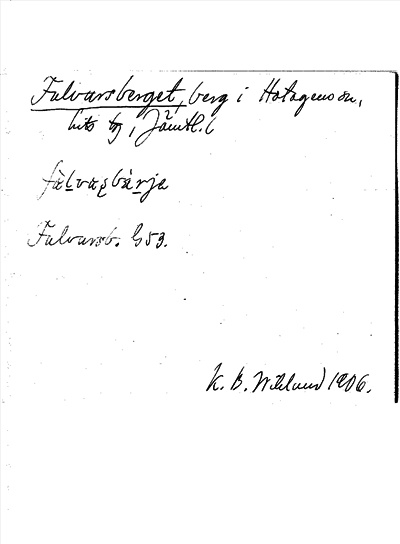 Falvarsberget, berg i Hotagens sn,
lits tg, Jämtl. l
fàlvaṣbàrja
Falvarsb. G53.
K. B. Wiklund 1906.